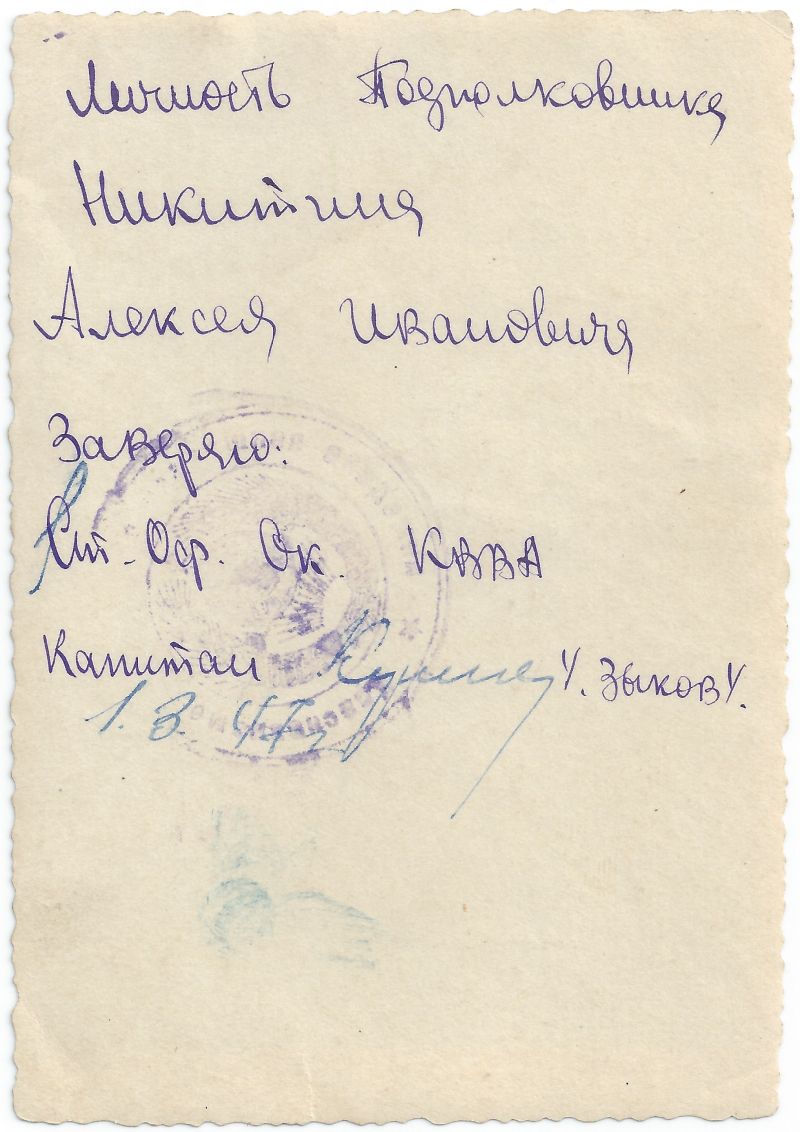 Личность Подполковника
Никитина
Алексея Ивановича
Заверяю:
Ст. Оф. Ок. КВВА
Капитан /. Зыков /.
1.3.47г.